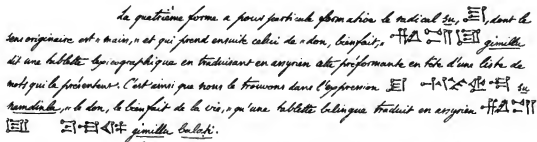 La quatrième forme a pour particule formative le radical su, 𒋗, dont le
sens originaire est « main, » et qui prend ensuite celui de « don, bienfait, » gimillu
dit une tablette lexicographique en traduisant en assyrien cette préformante en tête d'une liste de
mots qui la présentent. C'est ainsi que nous le trouvons dans l'expression su
namdinla, « le don, le bienfait de la vie, » qu'une tablette bilingue traduit en assyrien
gimillu balati.